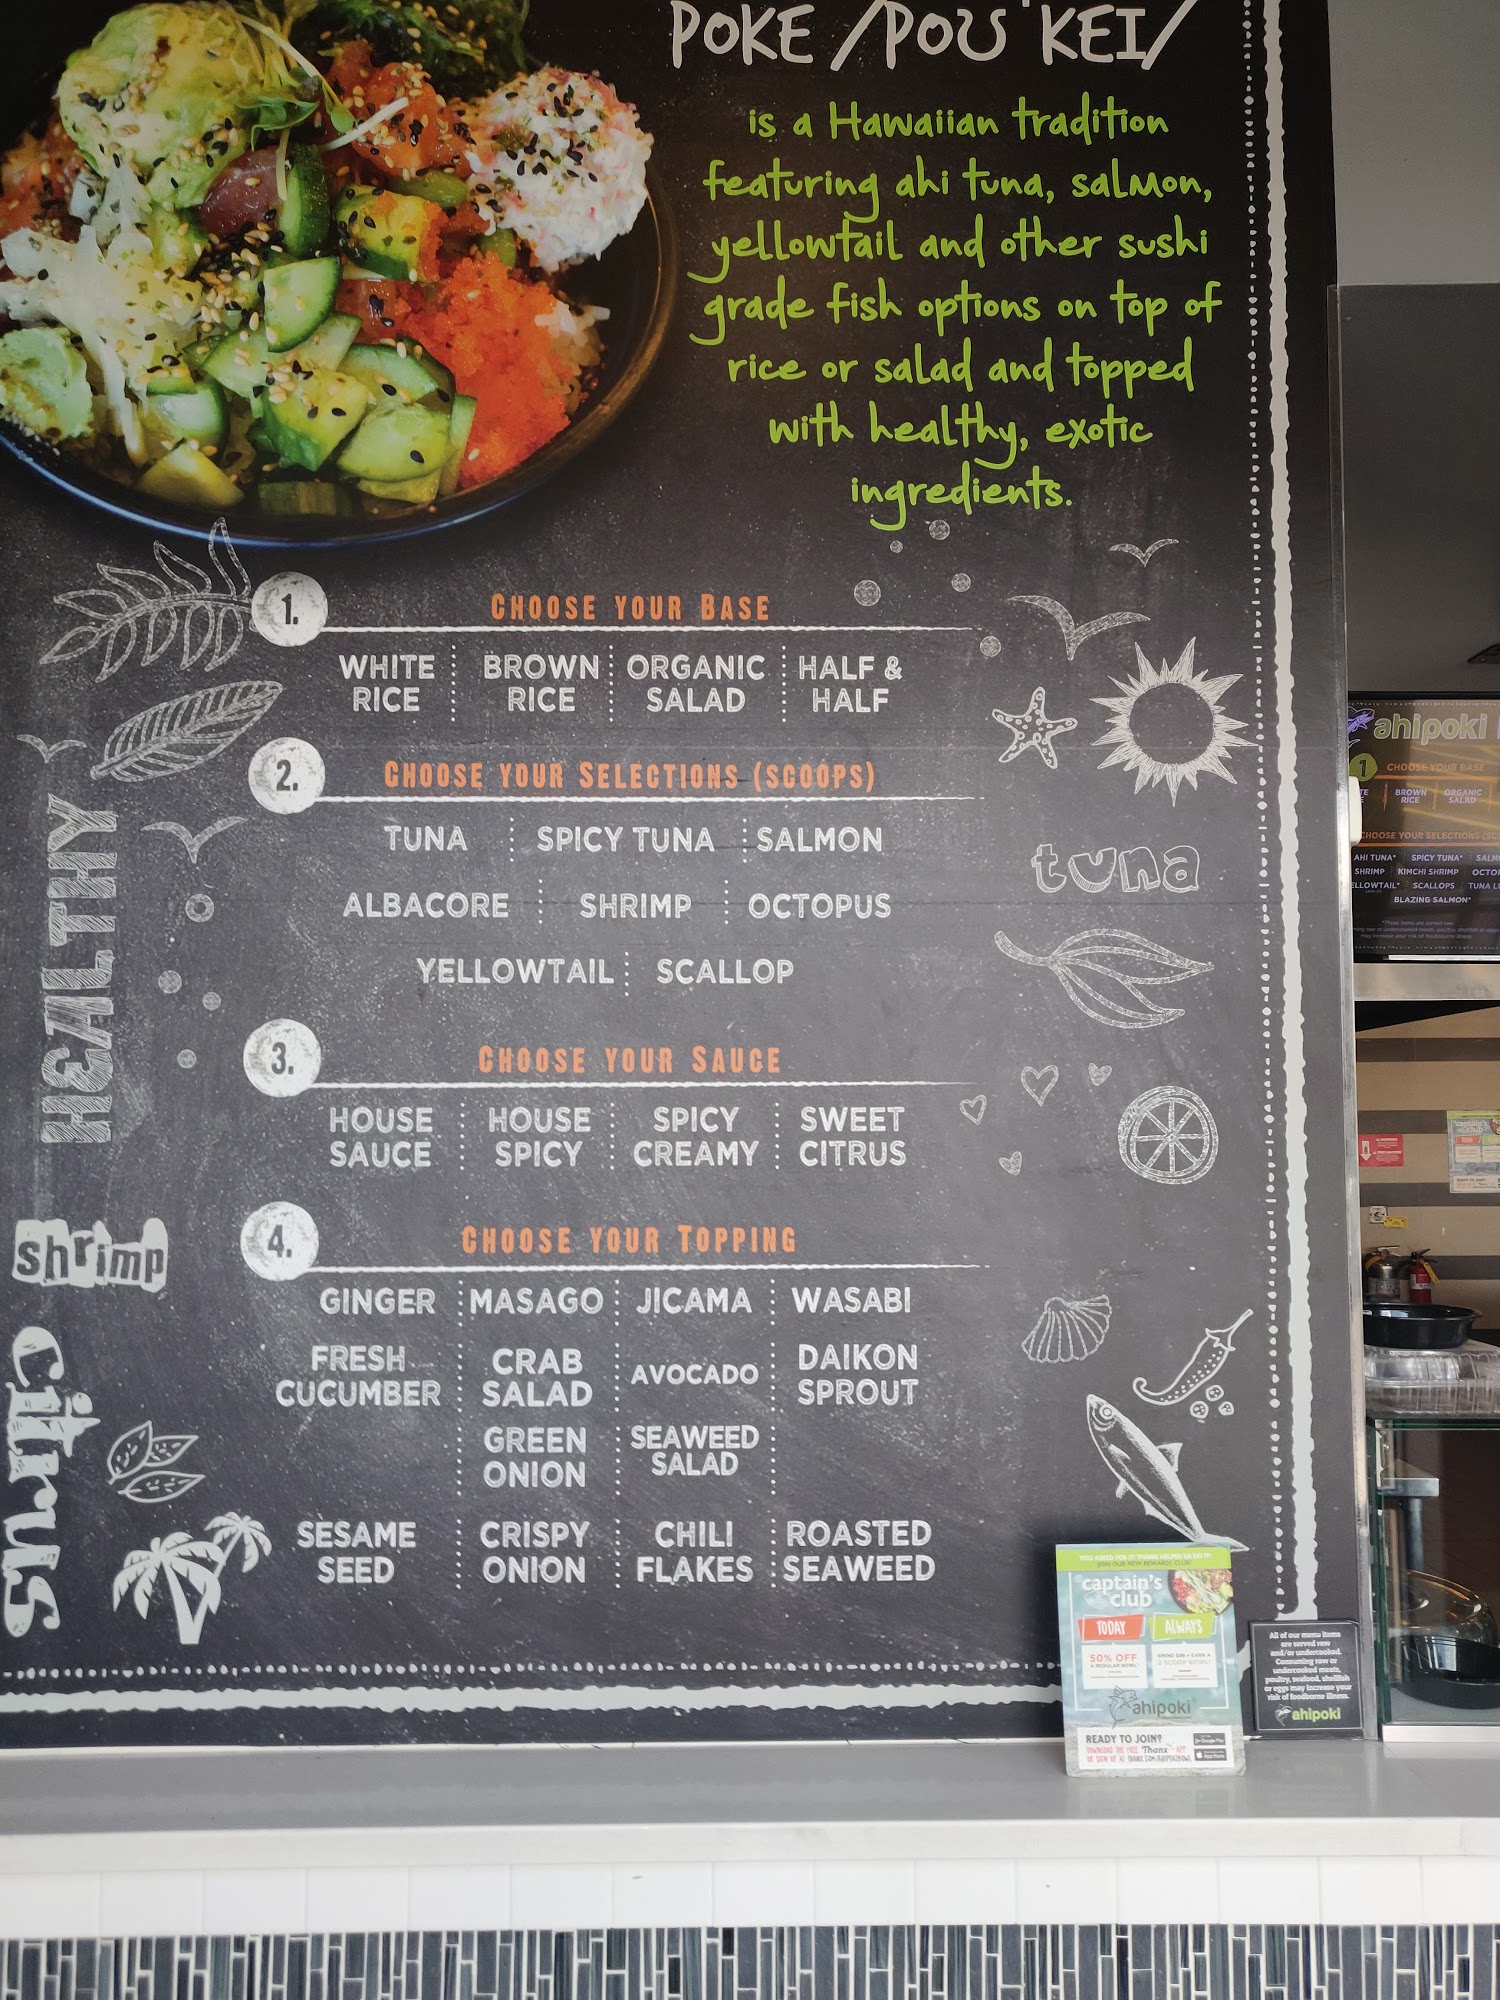 POKE /POU'KEI/
is a Hawaiian tradition
featuring ahi tuna, salmon,
yellowtail and other sushi
grade fish options on top of
rice or salad and topped
with healthy, exotic
ingredients.
1. CHOOSE YOUR BASE
WHITE RICE
BROWN RICE
ORGANIC SALAD
HALF & HALF
2. CHOOSE YOUR SELECTIONS (SCOOPS)
TUNA SPICY TUNA SALMON
ALBACORE SHRIMP OCTOPUS
YELLOWTAIL SCALLOP
3. CHOOSE YOUR SAUCE
HOUSE SAUCE
HOUSE SPICY
SPICY CREAMY
SWEET CITRUS
4. CHOOSE YOUR TOPPING
GINGER MASAGO JICAMA WASABI
FRESH CUCUMBER
CRAB SALAD
AVOCADO
DAIKON SPROUT
GREEN ONION
SEAWEED SALAD
SESAME SEED
CRISPY ONION
CHILI FLAKES
ROASTED SEAWEED
HEALTHY
shrimp
citrus
tuna
YOU ASKED FOR IT! THANX HELPED US DO IT!
JOIN OUR NEW REWARDS CLUB!
captain's
club
TODAY ALWAYS
50% OFF
A REGULAR BOWL*
2 SCOOP BOWL*
ahipoki
READY TO JOIN?
DOWNLOAD THE FREE Thanx APP
Google Play
App Store
All of our menu items
are served raw
and/or undercooked.
Consuming raw or
undercooked meats,
poultry, seafood, shellfish
or eggs may increase your
risk of foodborne illness.
ahipoki
ahipoki
1 CHOOSE YOUR BASE
BROWN RICE
ORGANIC SALAD
CHOOSE YOUR SELECTIONS
AHI TUNA* SPICY TUNA*
SHRIMP KIMCHI SHRIMP
SCALLOPS TUNA
BLAZING SALMON*
captain's
club